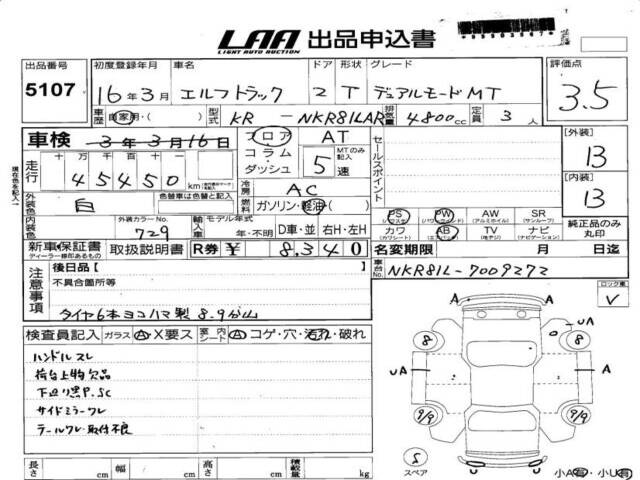 LAA 出品申込書
LIGHT AUTO AUCTION
出品番号 初度登録年月 車名 ドア 形状 グレード 評価点
5107 16年3月 エルフトラック 2 T デュアルモードMT 3.5
車歴 自家用・( ) 型式 KR - NKR81LAR 排気量 4800cc 定員 3人
車検 3年3月16日 フロア AT
コラム・ダッシュ MTのみ記入 5速
セールスポイント
[外装] 13
[内装] 13
走行 十万千百十 45450km
冷房 AC
現在色を記入
外装色 白 色替車は色替と記入 燃料 ガソリン・軽油( )
内装色 外装カラーNo. 729 輸入車 モデル年式 年・不明 D車・並 右H・左H
PS PW AW SR
(パワステ) (パワーウィンドウ) (アルミホイル) (サンルーフ)
カワ AB TV ナビ
(カワシート) (エアバック) (テレビ) (ナビゲーション)
純正品のみ丸印
新車保証書 取扱説明書 R券 ¥ 8,340
ディーラー標印あるもの
名変期限 月 日迄
車台No. NKR81L-7009272
注意事項 後日品[ ]
不具合箇所等
タイヤ6本ヨコハマ製 8.9分山
ロック車 レ
検査員記入 ガラス A・X要ス 室内シート A・コゲ・穴・汚れ・破れ
ハンドルスレ
荷台上物欠品
下廻り黒P.SC
サイドミラーワレ
テールワレ・取付不良
A A
UA
8 8
UA A
9/9 9/9
S
スペア
小A有・小U有
長さ cm 幅 cm 高さ cm 積載量 kg